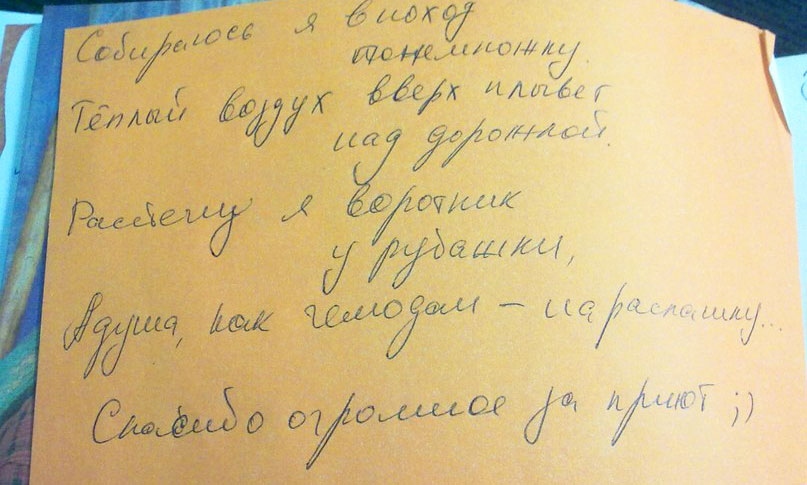 Собираюсь я в поход
понемножку.
Тёплый воздух вверх плывет
над дорожкой.
Расстегну я воротник
у рубашки,
А душа, как чемодан – нараспашку...
Спасибо огромное за приют ;)